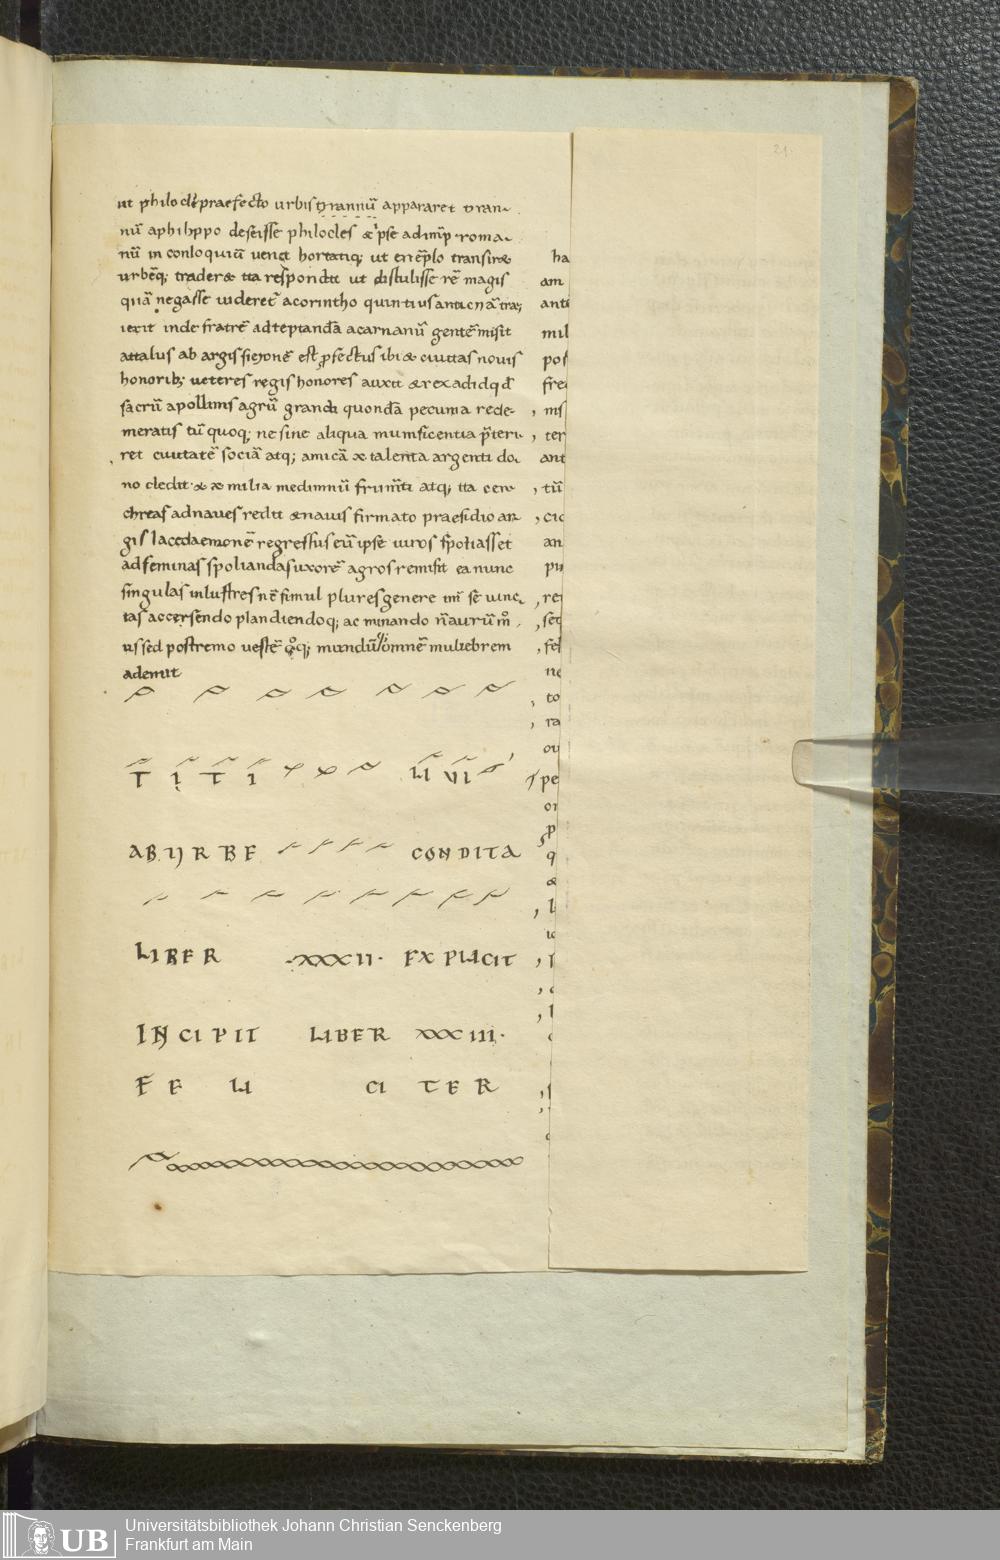 21.
ut philoclē praefecto urbis tyrannū appararet tiran
nū aphilippo desciisse philocles & ipse ad imp roma
nū in conloquiū venit hortatiq; ut exēplo transir&
urbēq; trader& ita respondit ut distulisse rē magis
quā negasse videret acorintho quintius anticyrā trai
iecit inde fratrē ad teptandā acarnanū gentē misit
attalus ab argis sicyonē est pfectus ibi & civitas novis
honorib; veteres regis honores auxit & rex ad id qd
sacrū apollinis agrū grandi quondā pecunia rede
meratis tū quoq; ne sine aliqua munificentia pteri
ret civitatē sociā atq; amicā x talenta argenti do
no dedit & x milia medimnū frumti atq; ita cen
chreas ad naves redit & navis firmato praesidio ar
gis lacedaemonē regressus cū ipse viros spoliasset
ad feminas spoliandas uxorē agros remisit ea nunc
singulas inlustres nc simul plures genere int se vinc
tas accersendo plandiendoq; ac minando n aurū m
iis sed postremo vestē qq; mundūq; omnē muliebrem
ademit
TITI LIVI
AB URBE CONDITA
LIBER XXXII· EXPLICIT
INCIPIT LIBER XXXIII·
FE LI CI TER
ha
am
ante
mil
pos
fre
, inf
, ter
ant
, tū
, cio
an
pu
, rei
, seq
, fel
ne
, to
, ra
ou
pe
or
p
q
&
, l
Universitätsbibliothek Johann Christian Senckenberg
Frankfurt am Main
UB